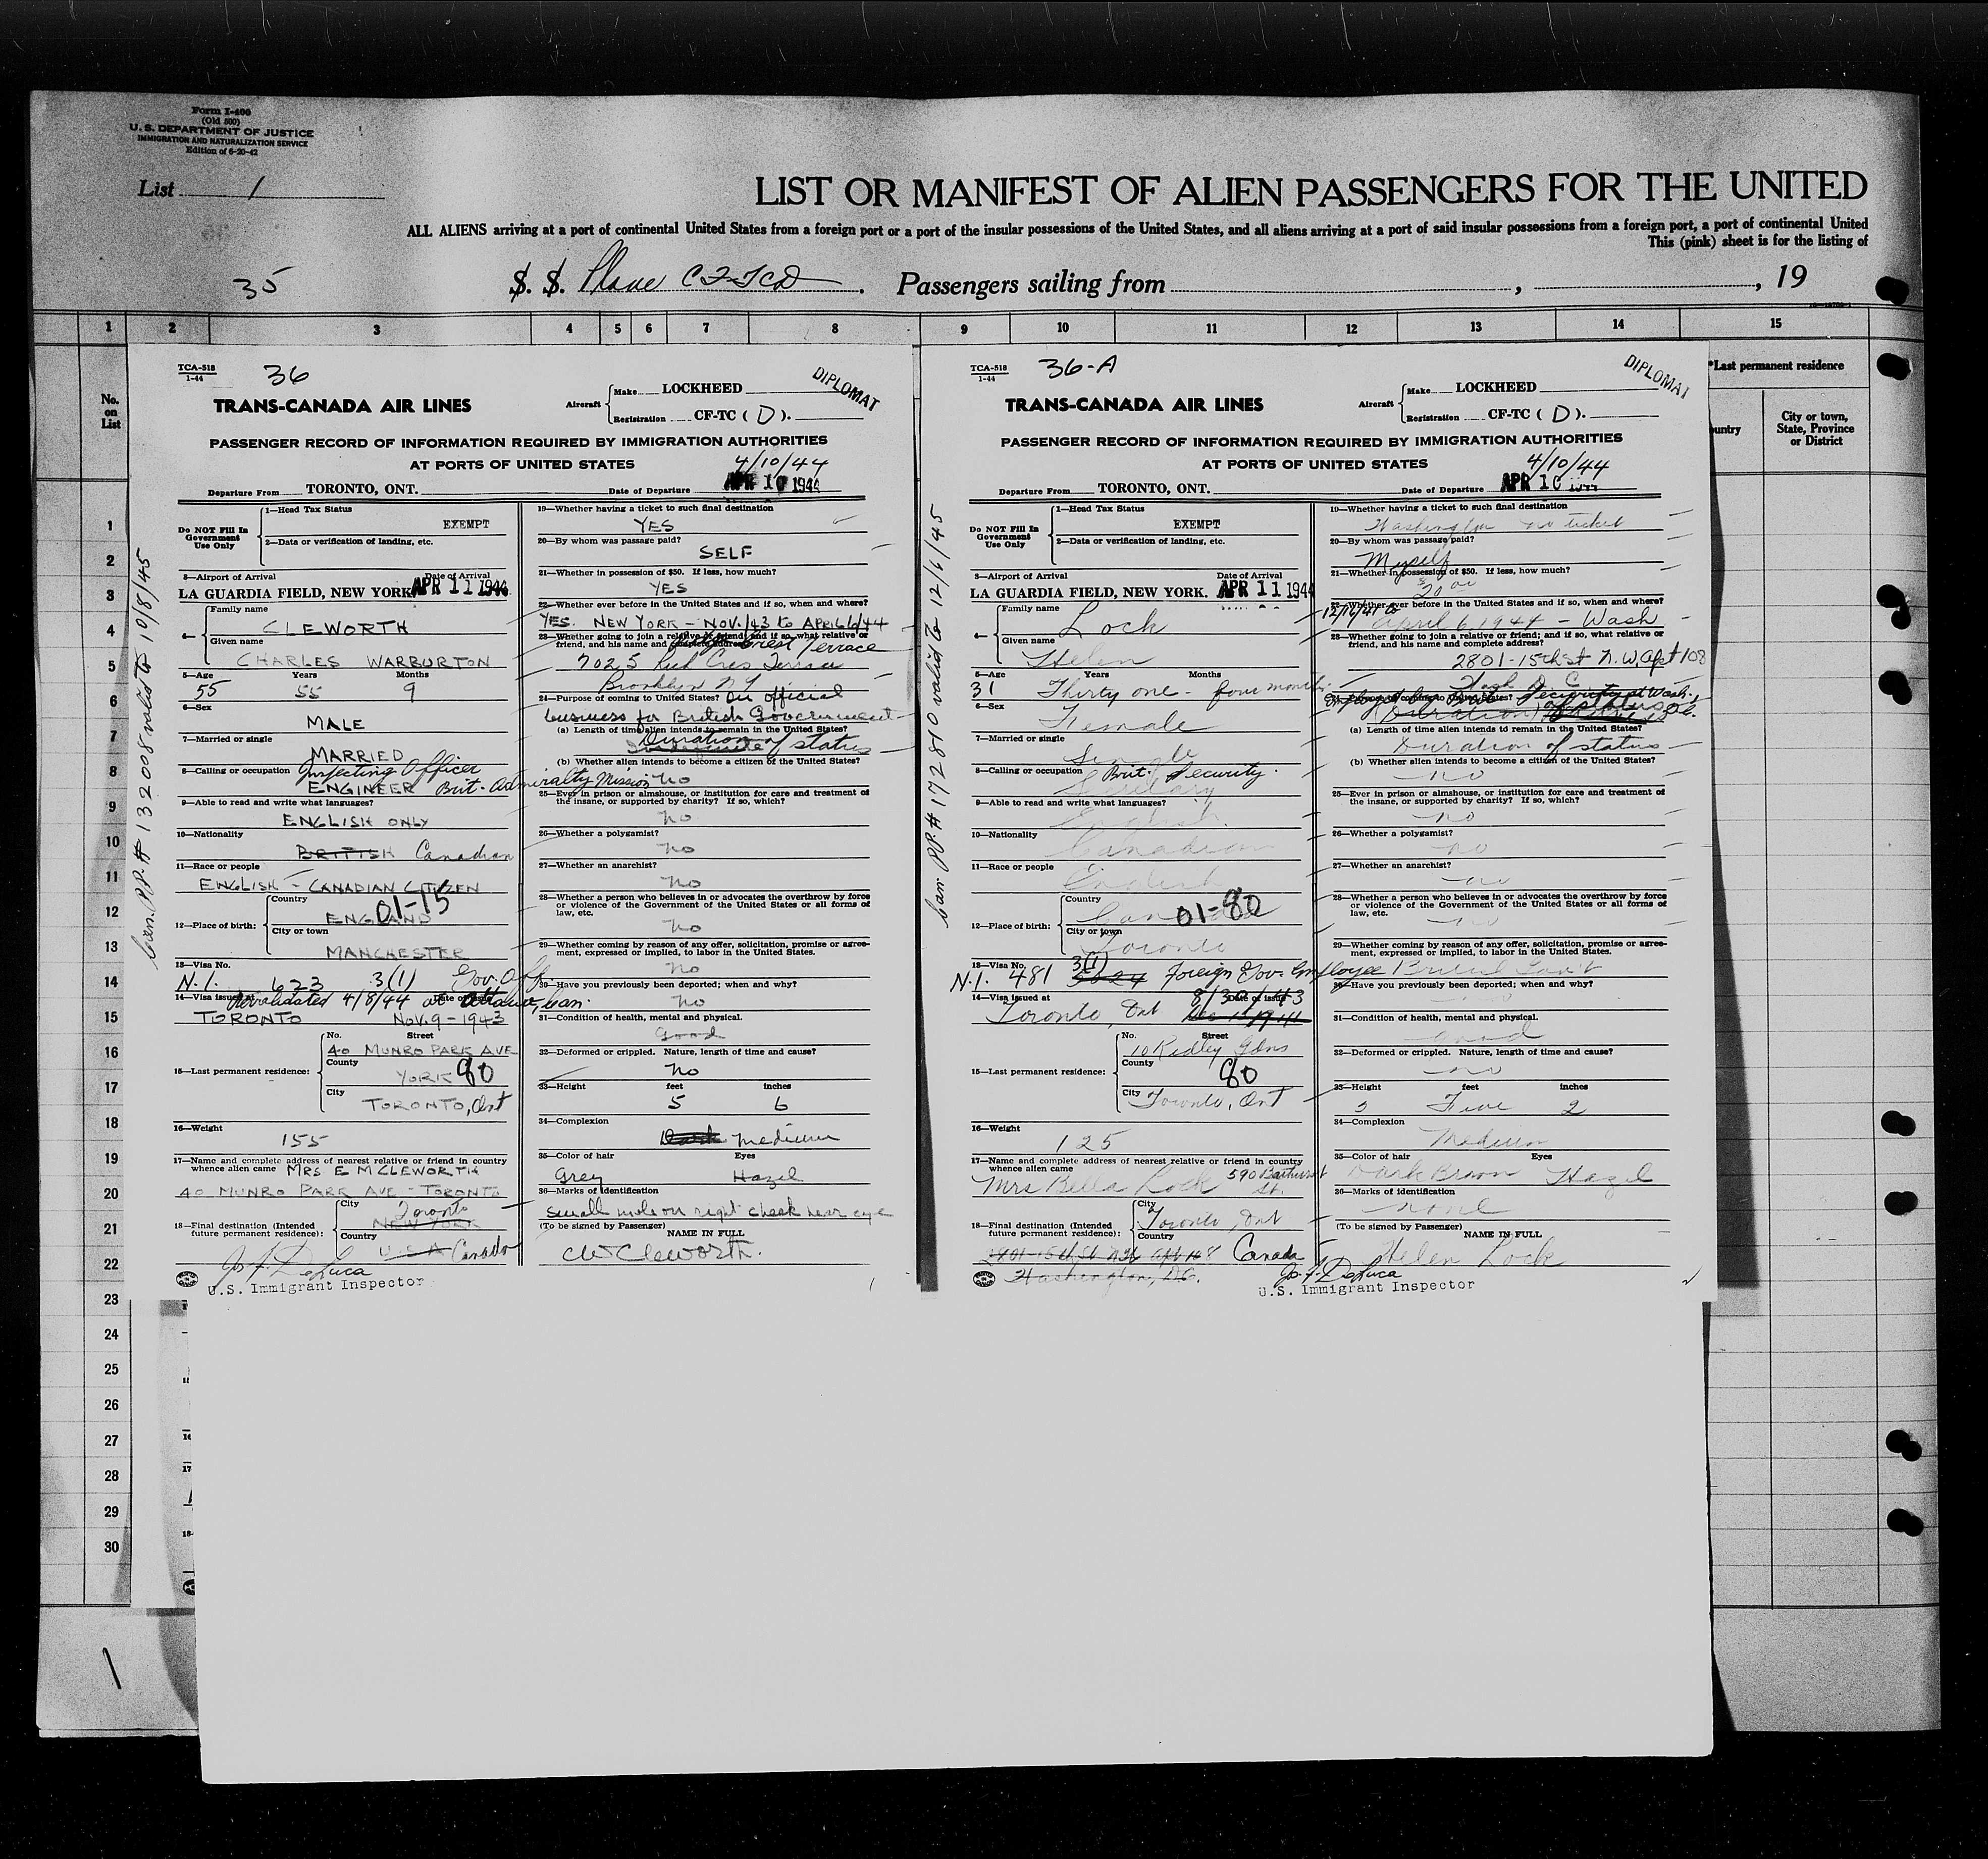 Form I-400
(Old 500)
U. S. DEPARTMENT OF JUSTICE
IMMIGRATION AND NATURALIZATION SERVICE
Edition of 6-20-42
List 1
LIST OR MANIFEST OF ALIEN PASSENGERS FOR THE UNITED
ALL ALIENS arriving at a port of continental United States from a foreign port or a port of the insular possessions of the United States, and all aliens arriving at a port of said insular possessions from a foreign port, a port of continental United
This (pink) sheet is for the listing of
35
S. S. Plane CF-TCD. Passengers sailing from , , 19
1 2 3 4 5 6 7 8 9 10 11 12 13 14 15
No. on List
*Last permanent residence
City or town, State, Province or District
1
2
3
4
5
6
7
8
9
10
11
12
13
14
15
16
17
18
19
20
21
22
23
24
25
26
27
28
29
30
Can. PP. # 132008 valid to 10/8/45
TCA-518
1-44
36
DIPLOMAT
TRANS-CANADA AIR LINES
Aircraft Make LOCKHEED
Registration CF-TC ( D ).
PASSENGER RECORD OF INFORMATION REQUIRED BY IMMIGRATION AUTHORITIES
AT PORTS OF UNITED STATES
4/10/44
Departure From TORONTO, ONT. Date of Departure APR 10 1944
Do NOT Fill In Government Use Only
1—Head Tax Status
EXEMPT
2—Data or verification of landing, etc.
3—Airport of Arrival Date of Arrival
LA GUARDIA FIELD, NEW YORK. APR 11 1944
4— Family name
CLEWORTH
Given name
CHARLES WARBURTON
5—Age Years Months
55 55 9
6—Sex
MALE
7—Married or single
MARRIED
8—Calling or occupation Inspecting Officer
ENGINEER Brit. Admiralty Mission
9—Able to read and write what languages?
ENGLISH ONLY
10—Nationality
BRITISH Canadian
11—Race or people
ENGLISH - CANADIAN CITIZEN
12—Place of birth: Country
ENGLAND 01-15
City or town
MANCHESTER
13—Visa No.
N.I. 623 3(1) Gov. Off.
14—Visa issued at Date of issue
Revalidated 4/8/44 at Ottawa, Can.
TORONTO NOV. 9 - 1943
No. Street
40 MUNRO PARK AVE
15—Last permanent residence: County
YORK 80
City
TORONTO, Ont
16—Weight
155
17—Name and complete address of nearest relative or friend in country
whence alien came MRS E M CLEWORTH
40 MUNRO PARK AVE - TORONTO
18—Final destination (Intended future permanent residence): City
Toronto
NEW YORK
Country
U.S.A Canada
Jo. F. DeLuca
U.S. Immigrant Inspector
19—Whether having a ticket to such final destination
YES
20—By whom was passage paid?
SELF
21—Whether in possession of $50. If less, how much?
YES
22—Whether ever before in the United States and if so, when and where?
YES. NEW YORK - NOV./43 to APRIL 6/44
23—Whether going to join a relative or friend; and if so, what relative or
friend, and his name and complete address?
Crest Terrace
7025
Brooklyn N Y
24—Purpose of coming to United States? On official
business for British Government
(a) Length of time alien intends to remain in the United States?
Duration of status
(b) Whether alien intends to become a citizen of the United States?
NO
25—Ever in prison or almshouse, or institution for care and treatment of
the insane, or supported by charity? If so, which?
NO
26—Whether a polygamist?
NO
27—Whether an anarchist?
NO
28—Whether a person who believes in or advocates the overthrow by force
or violence of the Government of the United States or all forms of
law, etc.
NO
29—Whether coming by reason of any offer, solicitation, promise or agree-
ment, expressed or implied, to labor in the United States.
NO
30—Have you previously been deported; when and why?
NO
31—Condition of health, mental and physical.
Good
32—Deformed or crippled. Nature, length of time and cause?
NO
33—Height feet inches
5 6
34—Complexion
Dark medium
35—Color of hair Eyes
Grey Hazel
36—Marks of identification
small mole on right cheek near eye
(To be signed by Passenger) NAME IN FULL
CW Cleworth.
Can. PP. # 172810 valid to 12/6/45
TCA-518
1-44
36-A
DIPLOMAT
TRANS-CANADA AIR LINES
Aircraft Make LOCKHEED
Registration CF-TC ( D ).
PASSENGER RECORD OF INFORMATION REQUIRED BY IMMIGRATION AUTHORITIES
AT PORTS OF UNITED STATES
4/10/44
Departure From TORONTO, ONT. Date of Departure APR 10
Do NOT Fill In Government Use Only
1—Head Tax Status
EXEMPT
2—Data or verification of landing, etc.
3—Airport of Arrival Date of Arrival
LA GUARDIA FIELD, NEW YORK. APR 11 1944
4— Family name
Lock
Given name
Helen
5—Age Years Months
31 Thirty one - four months
6—Sex
Female
7—Married or single
Single
8—Calling or occupation Brit. Security.
Secretary
9—Able to read and write what languages?
English
10—Nationality
Canadian
11—Race or people
English
12—Place of birth: Country
Canada 01-80
City or town
Toronto
13—Visa No.
N.I. 481 3(1) Foreign Gov. Employee
14—Visa issued at Date of issue
8/30/43
Toronto, Ont
No. Street
10 Ridley Gdns
15—Last permanent residence: County
80
City Toronto, Ont
16—Weight
125
17—Name and complete address of nearest relative or friend in country
whence alien came
Mrs Bella Lock 590 Bathurst St.
18—Final destination (Intended future permanent residence): City
Toronto, Ont
Country
2801-15th St NW apt 108 Canada
Washington, D.C.
Jo. F. DeLuca
U.S. Immigrant Inspector
19—Whether having a ticket to such final destination
Washington no ticket
20—By whom was passage paid?
Myself
21—Whether in possession of $50. If less, how much?
$20.00
22—Whether ever before in the United States and if so, when and where?
12/16/41 to
April 6, 1944 - Wash
23—Whether going to join a relative or friend; and if so, what relative or
friend, and his name and complete address?
2801-15th St N.W, Apt 108
Wash D. C.
24—Purpose of coming to United States?
(a) Length of time alien intends to remain in the United States?
Duration of status
(b) Whether alien intends to become a citizen of the United States?
no
25—Ever in prison or almshouse, or institution for care and treatment of
the insane, or supported by charity? If so, which?
no
26—Whether a polygamist?
no
27—Whether an anarchist?
no
28—Whether a person who believes in or advocates the overthrow by force
or violence of the Government of the United States or all forms of
law, etc.
no
29—Whether coming by reason of any offer, solicitation, promise or agree-
ment, expressed or implied, to labor in the United States.
30—Have you previously been deported; when and why?
no
31—Condition of health, mental and physical.
good
32—Deformed or crippled. Nature, length of time and cause?
no
33—Height feet inches
5 Five 2
34—Complexion
Medium
35—Color of hair Eyes
Dark Brown Hazel
36—Marks of identification
none
(To be signed by Passenger) NAME IN FULL
Helen Lock